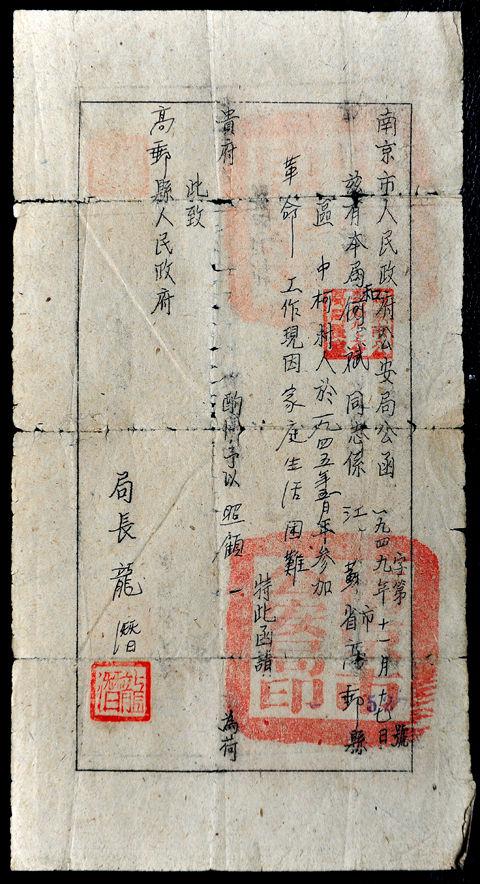 南京市人民政府公安局公函
字第 號
一九四九年十一月十七日
茲有本局何和斌同志係江蘇省高郵縣
市
區中柯村人於一九四五年五月參加
革命工作現因家庭生活困難特此函請
貴府酌情予以照顧為荷
此致
高郵縣人民政府
局長龍潛
龍潛